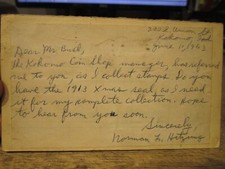 Kokomo, Ind.
June 11, 1962
Dear Mr.
the Kokomo Coin Shop manager, has referred
me to you, as I collect stamps. Do you
have the 1913 Xmas seal, as I need
it for my complete collection. Hope
to hear from you soon.
Sincerely,
Norman L.